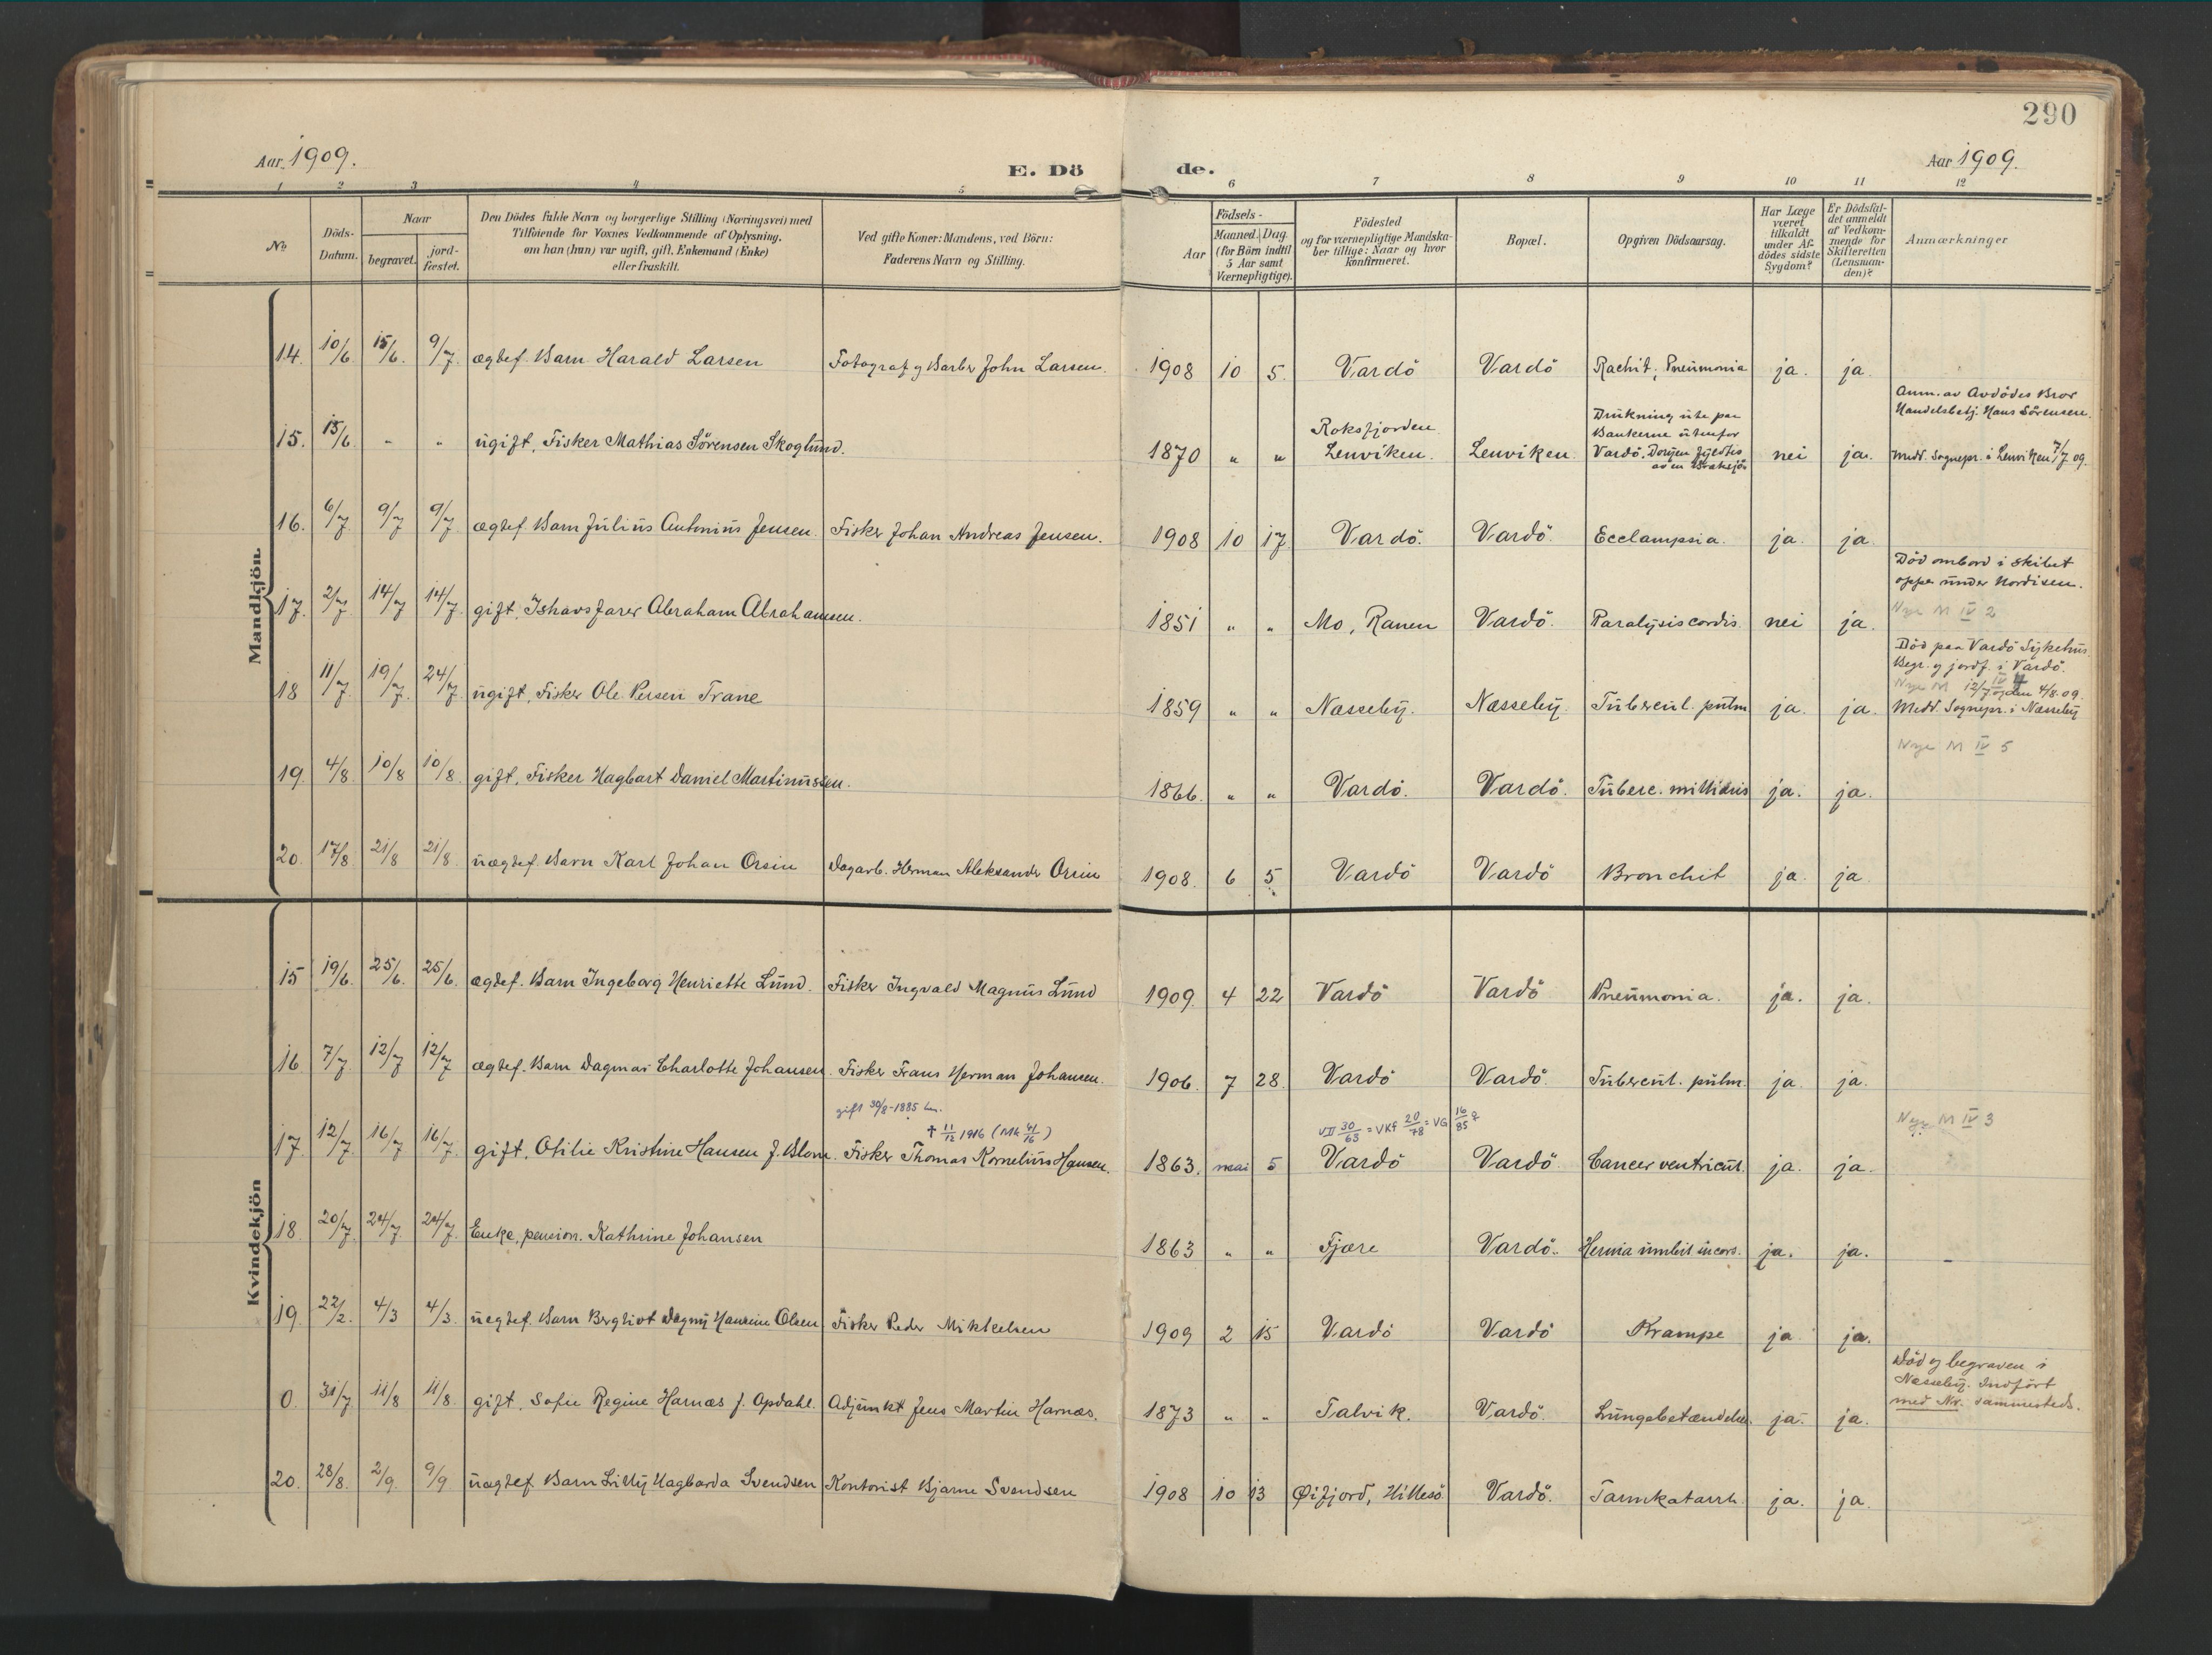 290
Aar 1909.
E. Dö
de.
Aar 1909.
1 2 3 4 5 6 7 8 9 10 11 12
No
Döds-Datum.
Naar
begravet.
jord-fæstet.
Den Dödes fulde Navn og borgerlige Stilling (Næringsvei) med
Tilföiende for Voxnes Vedkommende af Oplysning,
om han (hun) var ugift, gift, Enkemand (Enke)
eller fraskilt.
Ved gifte Koner: Mandens, ved Börn:
Faderens Navn og Stilling.
Födsels-
Aar
Maaned. Dag.
(for Börn indtil
5 Aar samt
Værnepligtige).
Födested
og for værnepligtige Mandska-
ber tillige: Naar og hvor
konfirmeret.
Bopæl.
Opgiven Dödsaarsag.
Har Læge
været
tilkaldt
under Af-
dödes sidste
Sygdom?
Er Dödsfal-
det anmeldt
af Vedkom-
mende for
Skifteretten
(Lensman-
den)?
Anmærkninger
Mandkjön.
14. 10/6 15/6. 9/7. ægtef. Barn Harald Larsen Fotograf og Barber John Larsen. 1908 10 5. Vardö Vardö Rachit, Pneumonia ja. ja.
Anm. av Avdödes Bror
Handelsbetj. Hans Sörensen.
15. 15/6. - " ugift, Fisker Mathias Sörensen Skoglund. 1870 " " Roksfjorden
Lenviken. Lenviken. Drukning ute paa
Bankerne utenfor
Vardö, Doryen fyldtes
av en Braatsjö nei ja. Medd. Sognepr. i Lenviken 7/7 09.
16. 6/7. 9/7 9/7. ægtef. Barn Julius Antonius Jensen. Fisker Johan Andreas Jensen. 1908 10 17. Vardö. Vardö. Ecclampsia. ja. ja.
Död ombord i skibet
oppe under Nordisen.
17. 2/7 14/7 14/7. gift, Ishavsfarer Abraham Abrahamsen. 1851 " " Mo, Ranen Vardö. Paralysis cordis. nei ja. Nye M IV 2
Död paa Vardö Sykehus.
Begr. og jordf. i Vardö.
Nye M IV 4
18 11/7. 19/7. 24/7. ugift, Fisker Ole Persen Trane 1859 " " Næsseby. Næsseby. Tubercul. pulm ja. ja. Medd. Sognepr. i Næsseby
Nye M IV 5
19. 4/8. 10/8 10/8. gift, Fisker Hagbart Daniel Martinussen. 1866. " " Vardö. Vardö. Tuberc. milliaris ja. ja.
20. 17/8. 21/8 21/8. uægtef. Barn Karl Johan Orsin Dagarb. Herman Aleksander Orsin 1908. 6 5 Vardö Vardö Bronchit ja. ja
Kvindekjön
15 19/6. 25/6. 25/6. ægtef. Barn Ingeborg Henriette Lund. Fisker Ingvald Magnus Lund 1909. 4 22 Vardö Vardö Pneumonia. ja. ja.
16 7/7. 12/7 12/7 ægtef. Barn Dagmar Charlotte Johansen. Fisker Frans Herman Johansen. 1906. 7 28. Vardö Vardö. Tubercul. pulm. ja. ja.
gift 30/8-1885
† 11/12 1916 (Mk 41/16)
VII 30/63 = VKf 20/78 = VG 16/85 ?
Nye M IV 3
17. 12/7. 16/7 16/7. gift, Otilie Kristine Hansen f. Blom. Fisker Thomas Kornelius Hansen. 1863. mai 5 Vardö Vardö. Cancer ventricul. ja. ja.
18 20/7. 24/7. 24/7. Enke, pension. Kathrine Johansen 1863 " " Fjære Vardö. Hernia umbil incarc. ja. ja. -
19. 22/2. 4/3 4/3. uegtef. Barn Bergliot Dagny Hansine Olsen Fisker Peder Mikkelsen 1909 2 15 Vardö Vardö Krampe ja ja.
Död og begraven i
Næsseby. Indfört
med Nr. sammesteds.
0. 31/7 11/8 11/8. gift, Sofie Regine Harnæs f. Opdahl. Adjunkt Jens Martin Harnæs. 1873 " " Talvik. Vardö. Lungebetændelse. ja. ja.
20. 28/8. 2/9. 9/9 uægtef. Barn Lilly Hagbarda Svendsen Kontorist Bjarne Svendsen 1908 10 13 Øifjord, Hillesö. Vardö. Tarmkatarrh. ja. ja.